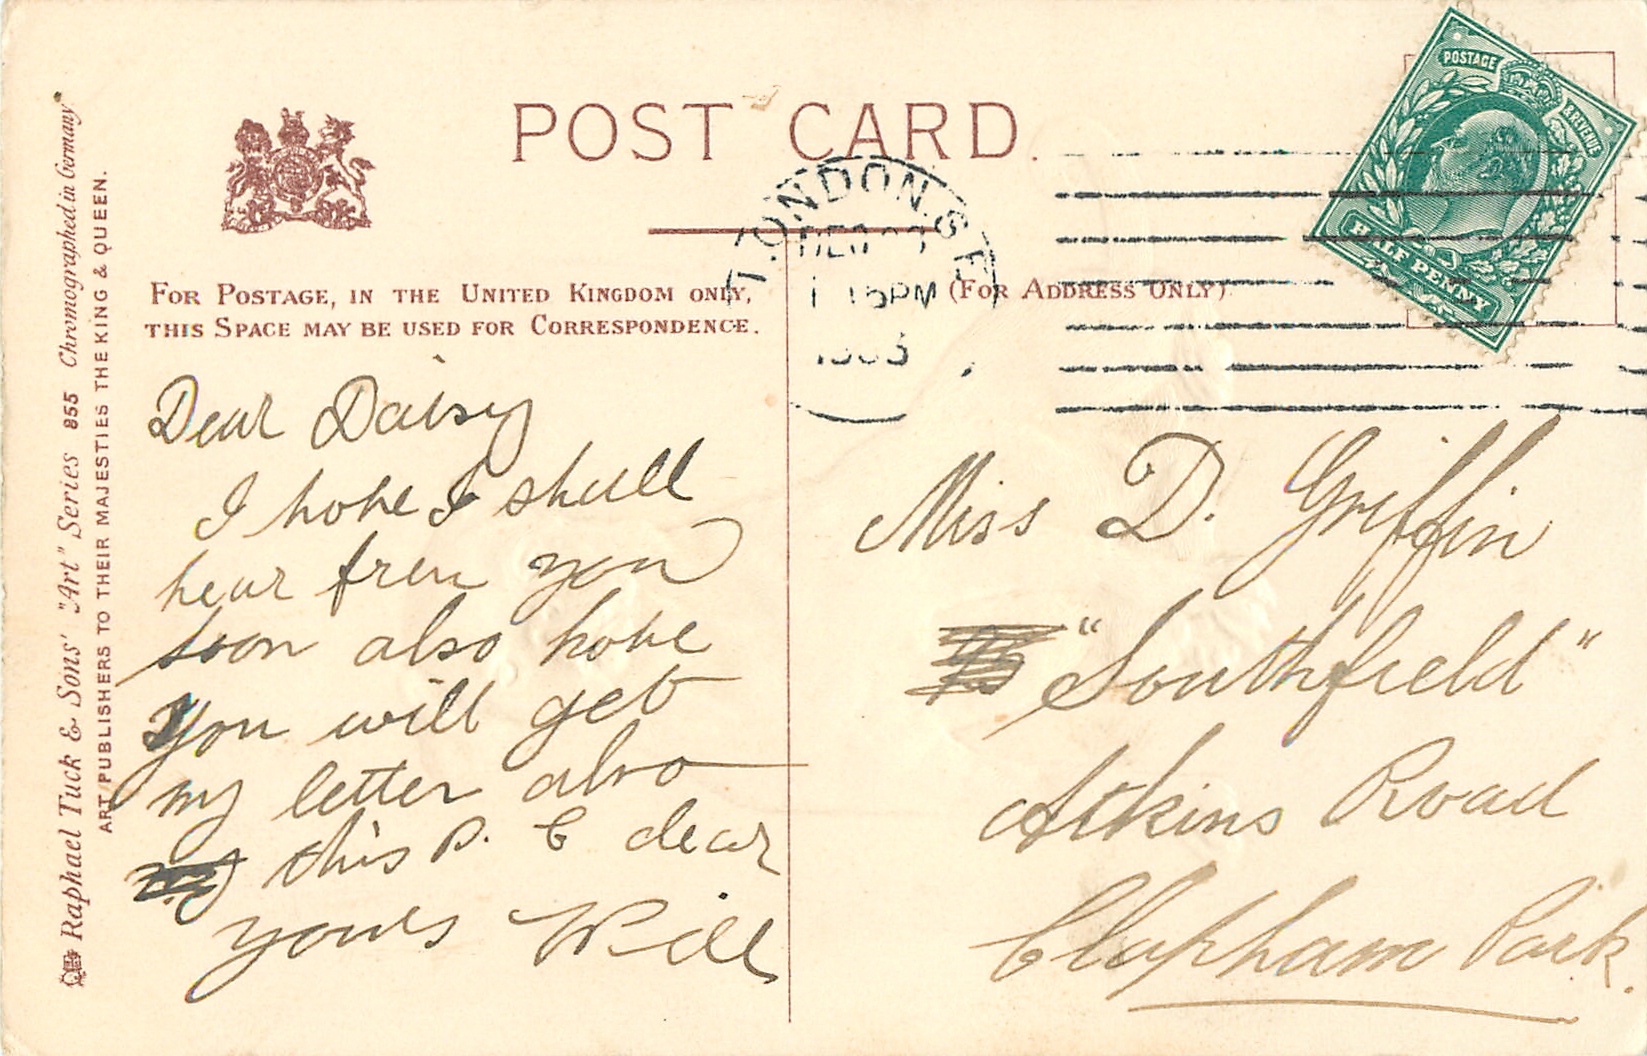 POST CARD.
FOR POSTAGE, IN THE UNITED KINGDOM ONLY,
THIS SPACE MAY BE USED FOR CORRESPONDENCE.
(FOR ADDRESS ONLY)
LONDON. S.E
15PM
POSTAGE & REVENUE
HALF PENNY
Raphael Tuck & Sons' "Art" Series 855 Chromographed in Germany
ART PUBLISHERS TO THEIR MAJESTIES THE KING & QUEEN.
Dear Daisy
I hope I shall
hear from you
soon also hope
you will get
my letter also
this P. C dear
yours Will
Miss D. Griffin
"Southfield"
Atkins Road
Clapham Park.